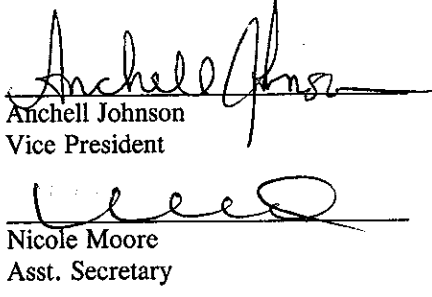 Anchell Johnson
Anchell Johnson
Vice President
Nicole Moore
Asst. Secretary